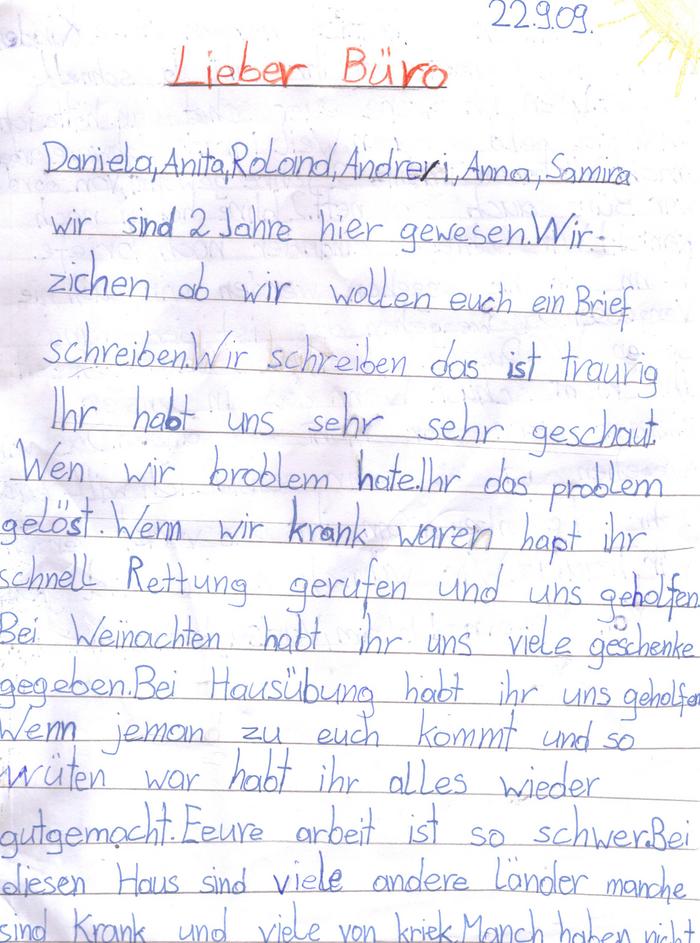 22.9.09.
Lieber Büro
Daniela, Anita, Roland, Andreri, Anna, Samira
wir sind 2 Jahre hier gewesen. Wir
zichen ab wir wollen euch ein Brief
schreiben. Wir schreiben das ist traurig
Ihr habt uns sehr sehr geschaut.
Wen wir broblem hate. Ihr das problem
gelöst. Wenn wir krank waren hapt ihr
schnell Rettung gerufen und uns geholfen.
Bei Weinachten habt ihr uns viele geschenke
gegeben. Bei Hausübung habt ihr uns geholfen
Wenn jeman zu euch kommt und so
wüten war habt ihr alles wieder
gutgemacht. Eeure arbeit ist so schwer. Bei
diesen Haus sind viele andere Länder manche
sind Krank und viele von kriek. Manch haben nicht